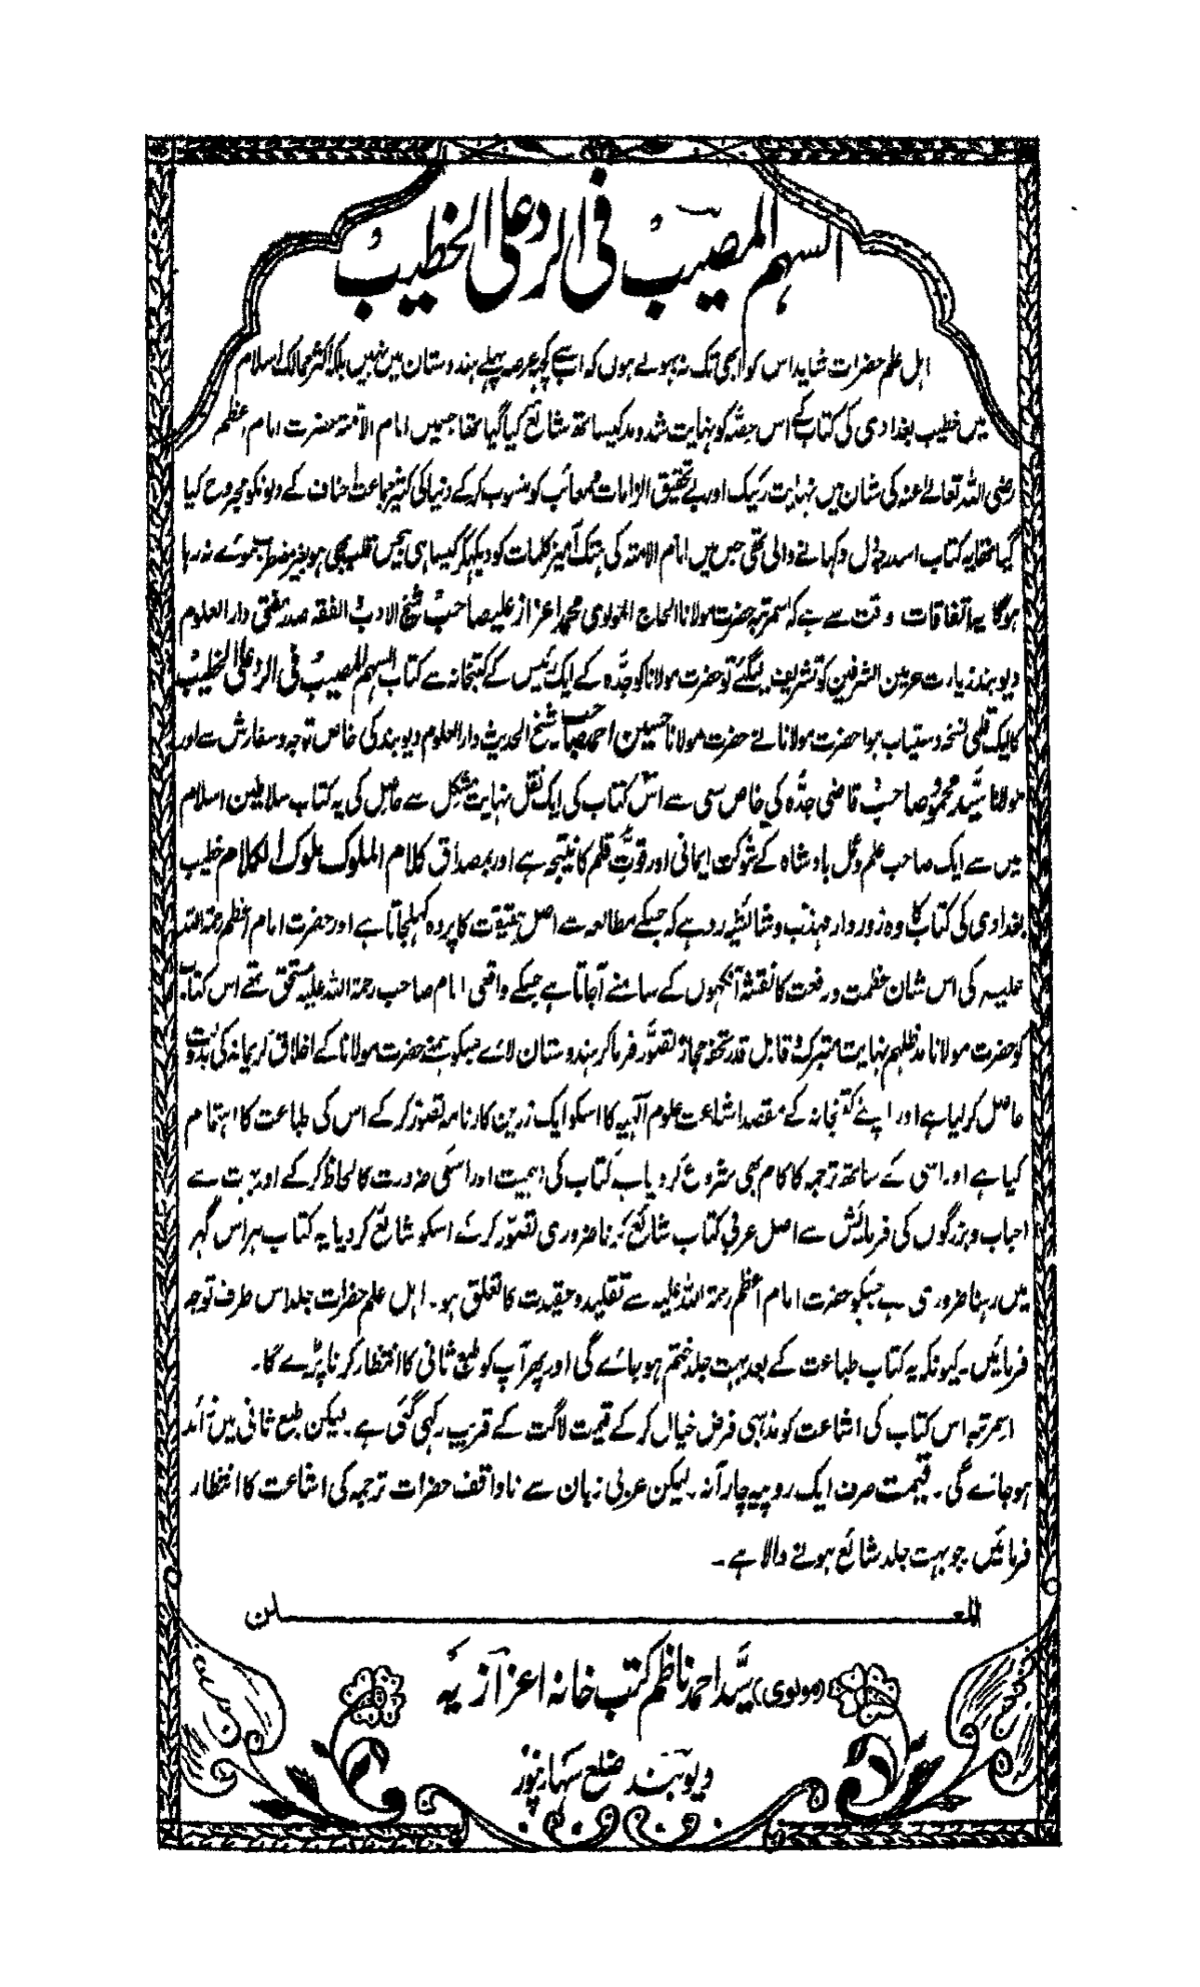 السہم المصیب فی الرد علی الخطیب
اہل علم حضرات شاید اس کو ابھی تک نہ بہولے ہوں کہ اب سے کچھ عرصہ پہلے ہندوستان میں نہیں بلکہ اکثر ممالک اسلام
میں خطیب بغدادی کی کتاب کے اس حصہ کو نہایت شد و مد کیساتھ شائع کیا گیا تھا جسمیں امام الائمۃ حضرت امام اعظم
رضی اللہ تعالےٰ عنہ کی شان میں نہایت رکیک اور بے تحقیق الزامات و معائب کو منسوب کر کے دنیا کی کثیر جماعت احناف کے دلونکو مجروح کیا
گیا تھا یہ کتاب اسدرجہ دل دکہانے والی تھی جس میں امام الائمۃ کی ہتک آمیز کلمات کو دیکہکر کیسا ہی بے حس قلب بھی ہو بغیر مضطرب ہوئے نہ رہا
ہوگا یہ اتفاقات وقت سے ہے کہ اسمرتبہ حضرت مولانا الحاج المولوی محمد اعزاز علی صاحب شیخ الادب الفقہ صدر مفتی دار العلوم
دیوبند زیارت حرمین الشرفین کو تشریف لیگئے تو حضرت مولانا کو جدہ کے ایک رئیس کے کتبخانہ سے کتاب السہم المصیب فی الرد علی الخطیب
کا ایک قلمی نسخہ دستیاب ہوا حضرت مولانا نے حضرت مولانا حسین احمد صاحب شیخ الحدیث دار العلوم دیوبند کی خاص توجہ و سفارش سے اور
مولانا سید محمود صاحب قاضی جدہ کی خاص سعی سے اس کتاب کی ایک نقل نہایت مشکل سے حاصل کی یہ کتاب سلاطین اسلام
میں سے ایک صاحب علم و عمل بادشاہ کے شوکت ایمانی اور قوت قلم کا نتیجہ ہے اور بمصداق کلام الملوک ملوک الکلام خطیب
بغدادی کی کتاب کا وہ زوردار مہذب و شائستہ رد ہے کہ جسکے مطالعہ سے اصل حقیقت کا پردہ کہلجاتا ہے اور حضرت امام اعظم رحمۃ اللہ
علیہ کی اس شان عظمت و رفعت کا نقشہ آنکہوں کے سامنے آجاتا ہے جسکے واقعی امام صاحب رحمۃ اللہ علیہ مستحق تھے اس کتاب
کو حضرت مولانا مدظلہم نہایت متبرک قابل قدر تحفہ حجاز تصور فرما کر ہندوستان لائے جسکو ہمنے حضرت مولانا کے اخلاق کریمانہ کی بدولت
حاصل کر لیا ہے اور اپنے کتبخانہ کے مقصد اشاعت علوم آلہیہ کا اسکو ایک زرین کارنامہ تصور کر کے اس کی طباعت کا اہتمام
کیا ہے اور اسی کے ساتھ ترجمہ کا کام بھی شروع کر دیا ہے کتاب کی اہمیت اور اسکی ضرورت کا لحاظ کر کے اور بہت سے
احباب و بزرگوں کی فرمائش سے اصل عربی کتاب شائع کرنا ضروری تصور کر کے اسکو شائع کر دیا یہ کتاب ہر اس گہر
میں رہنا ضروری ہے جسکو حضرت امام اعظم رحمۃ اللہ علیہ سے تقلید و عقیدت کا تعلق ہو۔ اہل علم حضرات جلد اس طرف توجہ
فرمائیں۔ کیونکہ یہ کتاب طباعت کے بعد بہت جلد ختم ہو جائے گی اور پھر آپ کو طبع ثانی کا انتظار کرنا پڑے گا۔
اسمرتبہ اس کتاب کی اشاعت کو مذہبی فرض خیال کر کے قیمت لاگت کے قریب رکہی گئی ہے۔ لیکن طبع ثانی میں زائد
ہو جائے گی۔ قیمت صرف ایک روپیہ چار آنہ۔ لیکن عربی زبان سے ناواقف حضرات ترجمہ کی اشاعت کا انتظار
فرمائیں جو بہت جلد شائع ہونے والا ہے۔
المعـــلن
(مولوی) سید احمد ناظم کتب خانہ اعزازیہ
دیوبند ضلع سہارنپور